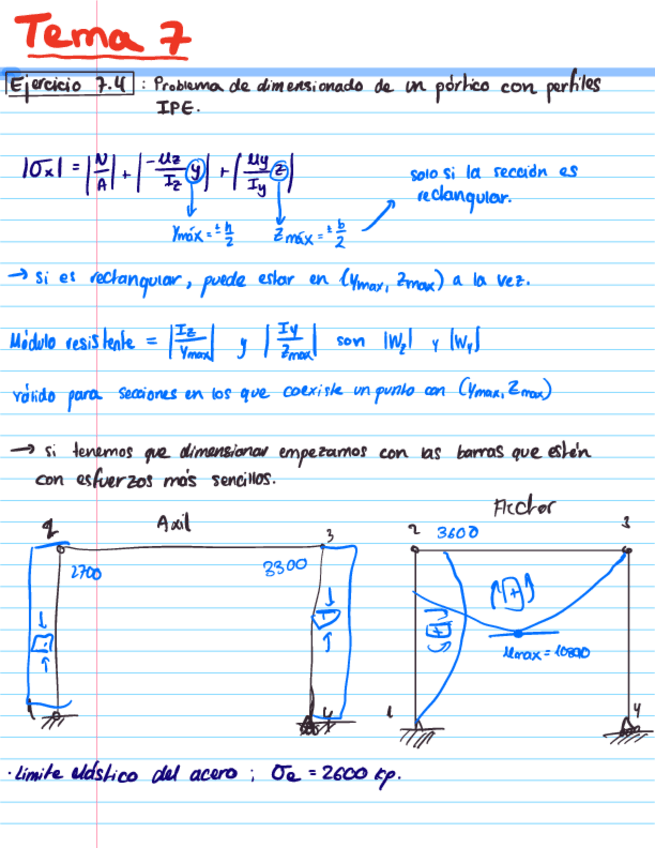 Tema 7
Ejercicio 7.4 : Problema de dimensionado de un pórtico con perfiles
IPE.
|σx| = |N/A| + |-Mz/Iz y| + |My/Iy z|
solo si la sección es
rectangular.
Ymáx = ± h/2 Zmáx = ± b/2
→ si es rectangular, puede estar en (Ymax, Zmax) a la vez.
Módulo resistente = |Iz/Ymax| y |Iy/Zmax| son |Wz| y |Wy|
válido para secciones en los que coexiste un punto con (Ymax, Zmax)
→ si tenemos que dimensionar empezamos con las barras que estén
con esfuerzos más sencillos.
Axil
Flector
2 3
2700 3300
1 4
2 3600 3
+
+
Mmax = 10890
1 4
· Limite elástico del acero ; σe = 2600 kp.